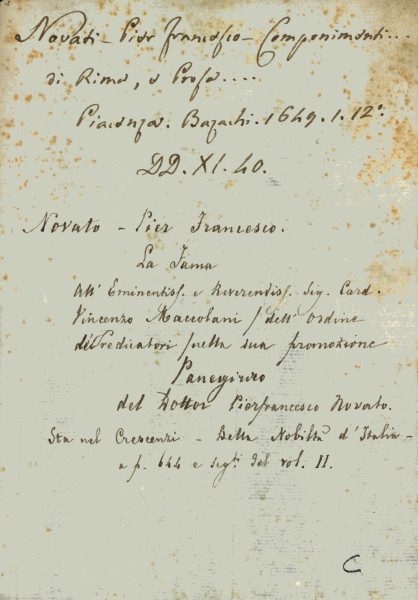 Novati - Pier francesco - Componimenti...
di Rima, e Prosa....
Piacenza. Bazachi. 1649. 1. 12º.
DD. XI. 40.
Novato - Pier Francesco.
La Fama
All' Eminentiss. e Reverendiss. Sig. Card.
Vincenzo Maccolani / dell' Ordine
de Predicatori / nella sua promozione
Panegirico
del Dottor Pierfrancesco Novato.
Sta nel Crescenzi - Della Nobiltà d'Italia -
a p. 644 e segti. del vol. II.
C